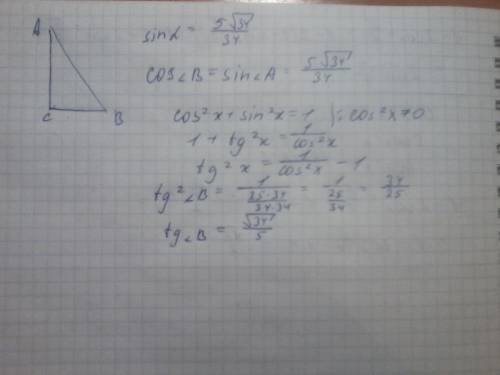 A
C
B
sin α = 5√34/34
cos∠B = sin∠A = 5√34/34
cos²x + sin²x = 1 |: cos²x ≠ 0
1 + tg²x = 1/cos²x
tg²x = 1/cos²x - 1
tg²∠B = 1/(25·34/34·34) = 1/(25/34) = 34/25
tg∠B = √34/5